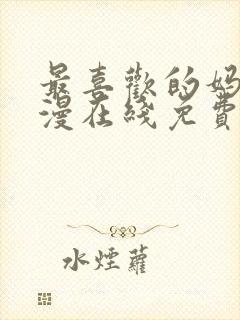 最喜歡的妈
漫在綫免費
水煙蘿